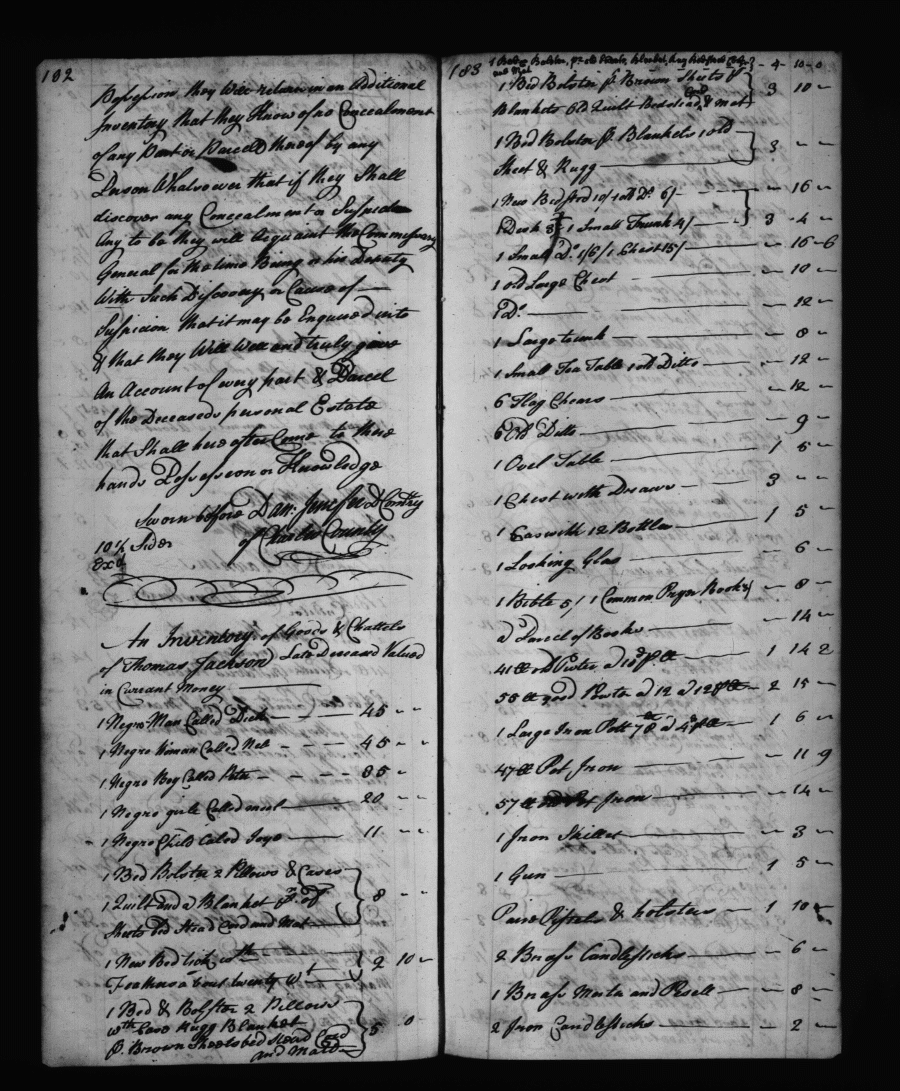 182
Possession they will return in an Additional
Inventory that they Know of no Concealment
of any Part or Parcell thereof by any
Person Whatsoever that if they Shall
discover any Concealment or Suspect
Any to be they will Acquaint the Commissary
General for the time Being or his Deputy
With Such Discovery or Cause of
Suspicion that it may be Enquired into
& that they Will Well and truly give
An Account of every part & Parcel
of the Deceaseds personal Estate
that Shall hereafter Come to there
hands Possession or Knowledge
Sworn before Dan: Jenifer D Comtry
of Charles County
10½ Sides
Exd
An Inventory of Goods & Chattels
of Thomas Jackson Late Deceased Valued
in Currant Money
1 Negro Man Called Dick 45 - -
1 Negro Woman Called Nel 45 - -
1 Negro Boy Called Peter 35 -
1 Negro girle Called 20 - -
1 Negro Child Caled 11 - -
1 Bed Bolster 2 Pillows & Cases
1 Quilt and a Blanket pr of
Sheets Bed Stead Cord and Mat 8 - -
1 New Bed tick with
Feathers about twenty wt 2 10 -
1 Bed & Bolster 2 Pillows
wth Case Rugg Blanket
pr Brown Sheets bed Stead Cord
and Matt 5 0
183
1 Bed Bolster, pr old Sheets, Blanket, Rug Bedstead Cord
and Mat - 4 - 10 - 0
1 Bed Bolster pr Brown Sheets pr
Blankets Old Quilt Bedstead Cord & mat 3 10 -
1 Bed Bolster pr Blankets 1 old
Sheet & Rugg 3 - -
1 New Bedsted 10/ 1 old Do 6/ - 16 -
1 Desk 1 Small Trunk 4/ 3 - 4 -
1 Small Do 1/6/ 1 Chest 15/ - 16 - 6
1 old Large Chest - 10 -
1 Do - 12 -
1 Large trunk - 8 -
1 Small Tea Table 1 old Ditto - 12 -
6 Flag Chears - 12 -
6 Old Ditto 9 -
1 Ovel Table 1 5 -
1 Chest with Draws 3 - -
1 Cas with 12 Bottles 1 5 -
1 Looking Glas - 6 -
1 Bible 5/ 1 Common Prayr Book 3/ - 8 -
a Parcel of Books - 14 -
41 lb old Puter a 10d p lb 1 14 2
55 lb good Pewter a 12 a 12d p lb 2 15 -
1 Large Iron Pott 78 lb a 4d p lb 1 6 -
47 lb Pot Iron - 11 9
57 lb Pot Iron - 14 -
1 Iron Skillet - 3 -
1 Gun 1 5 -
Paire Pistols & holsters 1 10 -
2 Brass Candlesticks - 6 -
1 Brass Morta and Pesell - 8 -
2 Iron Candlesticks - 2 -